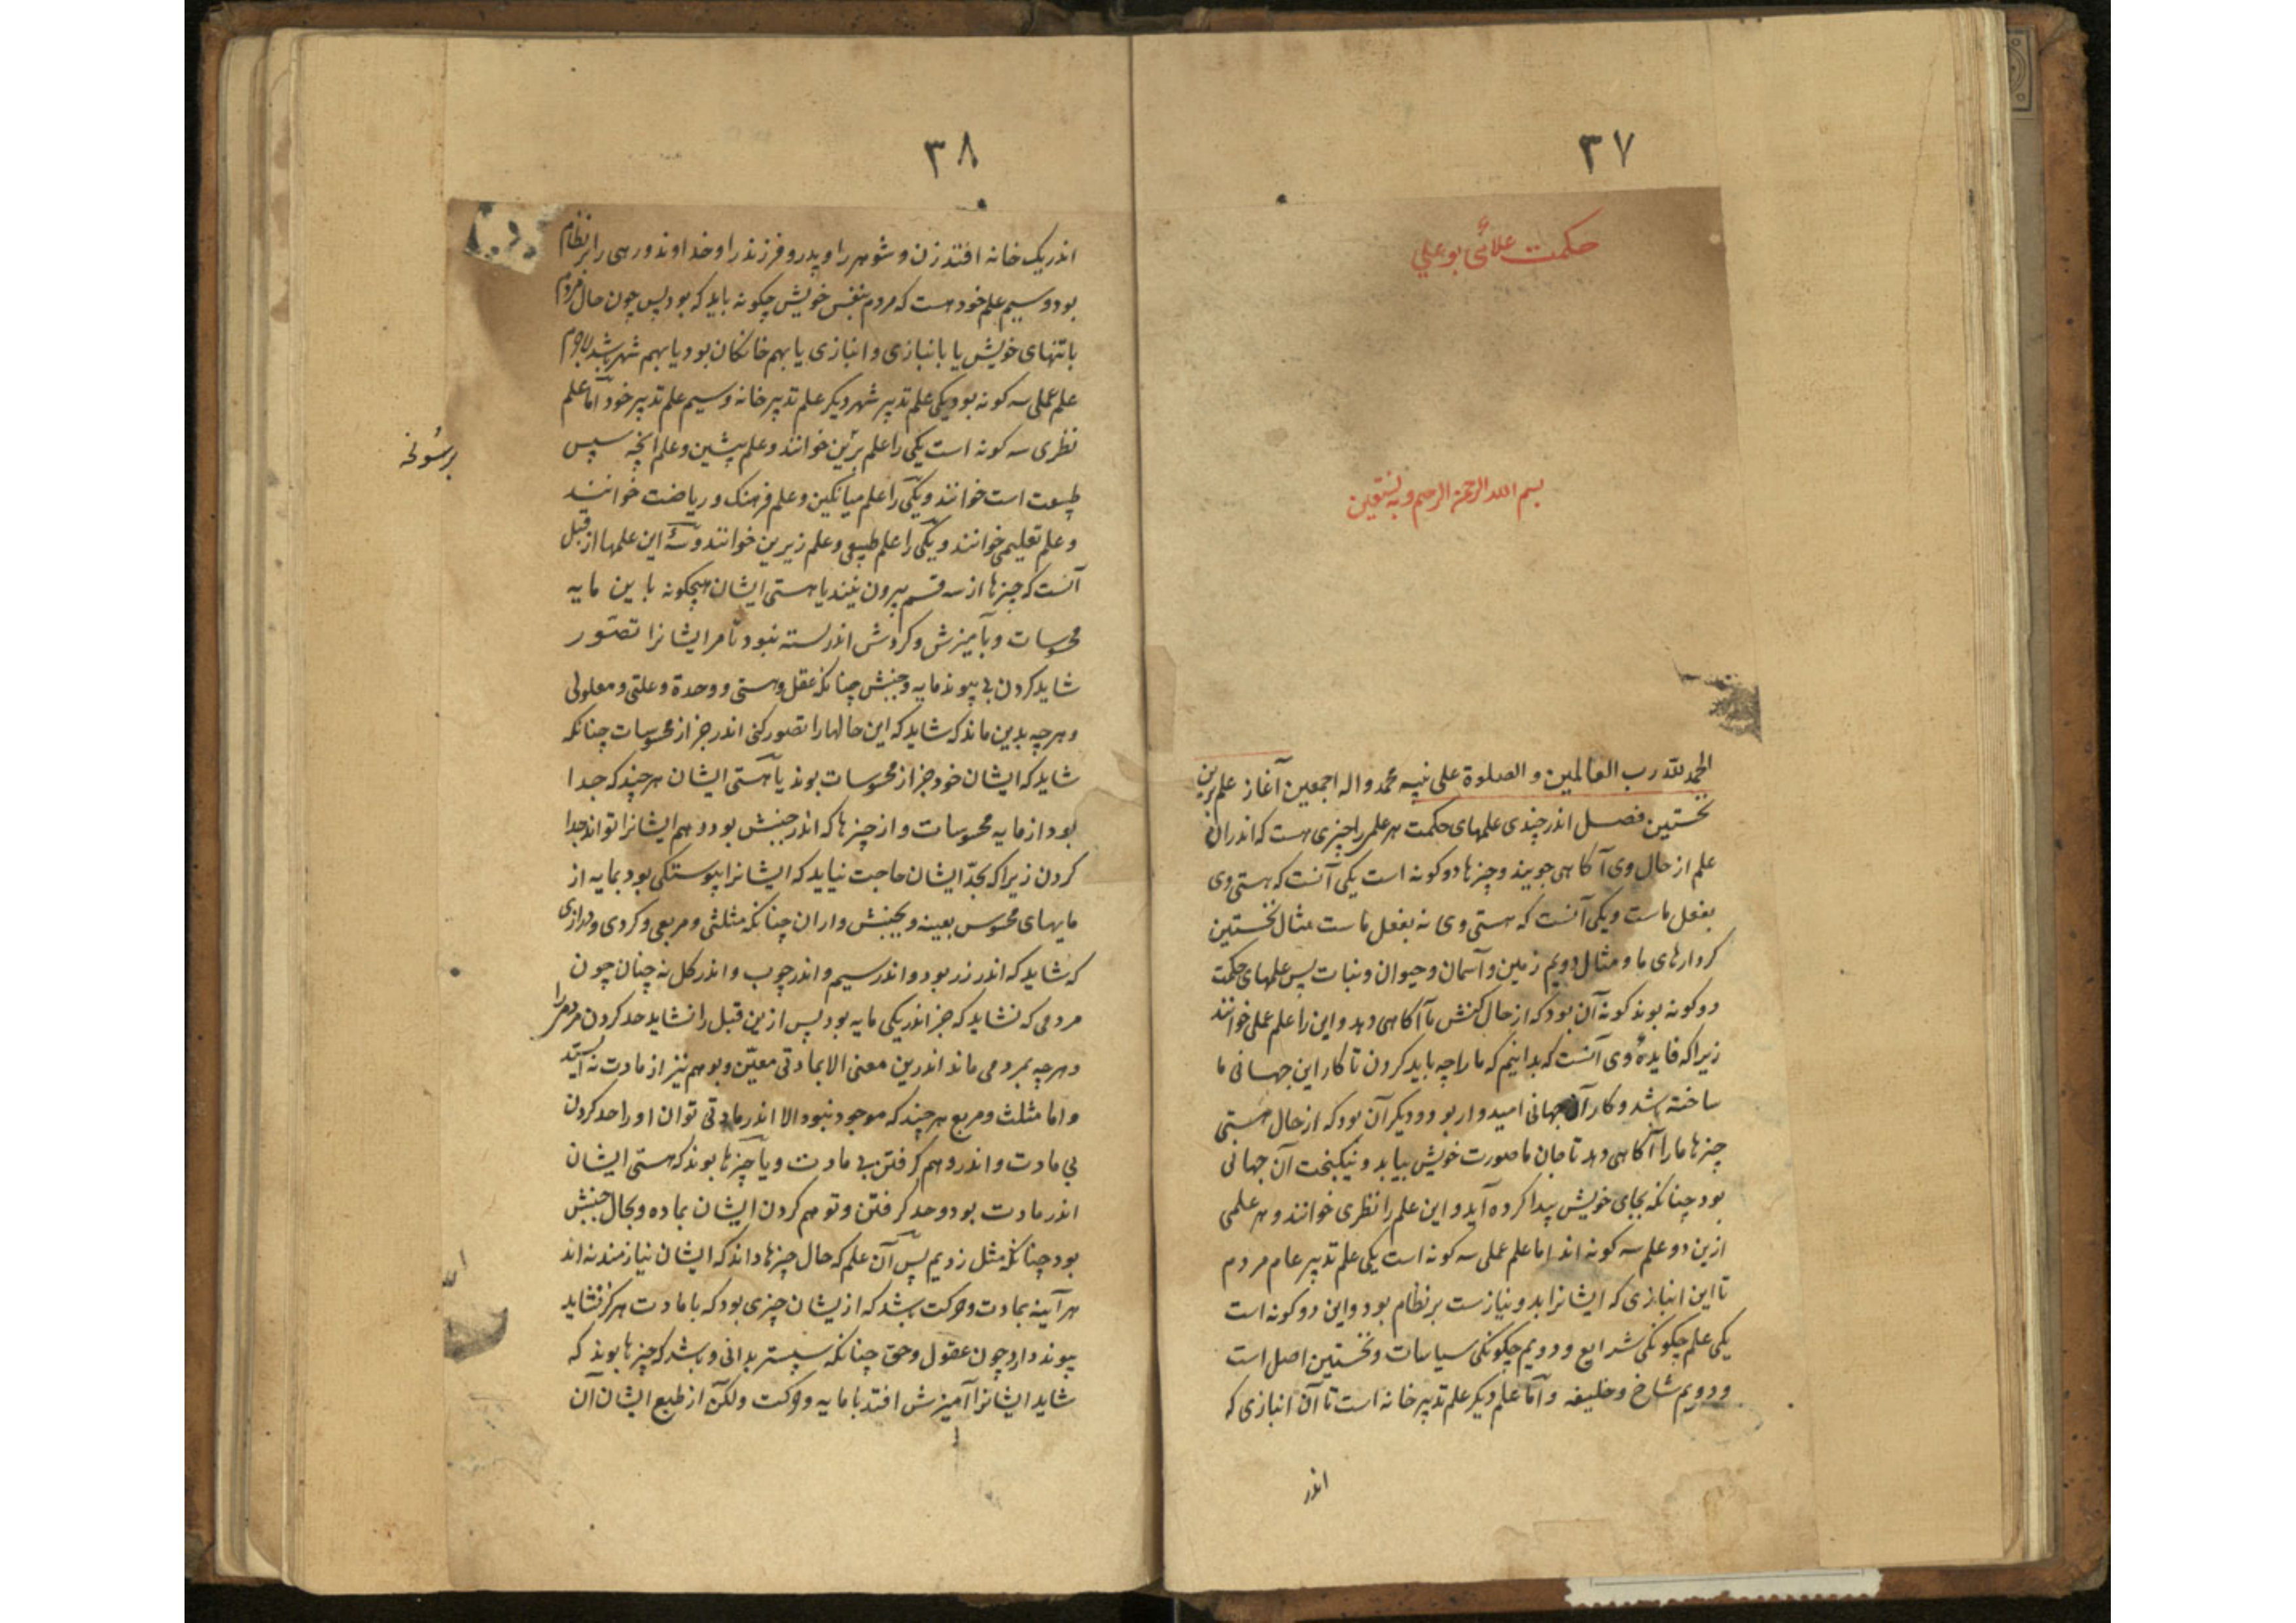 ٣٧
حکمت علائی بوعلی
بسم الله الرحمن الرحیم وبه نستعین
الحمد لله رب العالمین و الصلوة علی نبیه محمد واله اجمعین آغاز علم برین
نخستین فصل اندر چندی علمهای حکمت هر علمی را چیزی هست که اندران
علم از حال وی آکاهی جویند و چیزها دو کونه است یکی آنست که هستی وی
بفعل ماست و یکی آنست که هستی وی نه بفعل ماست مثال نخستین
کردارهای ما و مثال دویم زمین و آسمان و حیوان و نبات پس علمهای حکمت
دو کونه بوند کونه آن بود که از حال کنش ما آکاهی دهد و این را علم عملی خوانند
زیرا که فایدهٔ وی آنست که بدانیم که ما را چه باید کردن تا کار این جهانی ما
ساخته باشد و کار آن جهانی امیدوار بود و دیکر آن بود که از حال هستی
چیزها ما را آکاهی دهد تا جان ما صورت خویش بیابد و نیکبخت آن جهانی
بود چنانکه بجای خویش پیدا کرده آید و این علم را نظری خوانند و هر علمی
ازین دو علم سه کونه اند اما علم عملی سه کونه است یکی علم تدبیر عام مردم
تا این انبازی که ایشانرا بدو نیازست بر نظام بود و این دو کونه است
یکی علم چکونکی شرایع و دویم چکونکی سیاسات و نخستین اصل است
و دویم شاخ و خلیفه و اما علم دیکر علم تدبیر خانه است تا آن انبازی که
اندر
٣٨
اندر یک خانه افتد زن و شوهر را و پدر و فرزند را و خداوند و رهی را بر نظام
بود و سیم علم خود است که مردم بنفس خویش چکونه باید که بود پس چون حال مردم
یا بتنهای خویش یا بانبازی و انبازی یا بهم خانکان بود یا بهم شهر باشد لاجرم
علم عملی سه کونه بود یکی علم تدبیر شهر دیکر علم تدبیر خانه و سیم علم تدبیر خود اما علم
نظری سه کونه است یکی را علم برین خوانند و علم پیشین و علم آنچه سپس
طبیعت است خوانند و یکی را علم میانکین و علم فرهنک و ریاضت خوانند
و علم تعلیمی خوانند و یکی را علم طبیعی و علم زیرین خوانند و سه این علمها از قبل
آنست که چیزها از سه قسم بیرون نیند یا هستی ایشان هیچکونه باین مایه
محسوسات و بآمیزش و کردش اندر بسته نبود تا مر ایشانرا تصور
شاید کردن بی پیوند مایه و جنبش چنانکه عقل و هستی و وحدة و علتی و معلولی
و هر چه بدین ماند که شاید که این حالها را تصور کنی اندر جز از محسوسات چنانکه
شاید که ایشان خود جز از محسوسات بوند یا هستی ایشان هر چند که جدا
بود از مایه محسوسات و از چیزها که اندر جنبش بود و هم ایشانرا تواند جدا
کردن زیرا که بحد ایشان حاجت نیاید که ایشانرا پیوستکی بود بمایه از
مایهای محسوس بعینه و بجنبش واران چنانکه مثلثی و مربعی و کردی و درازی
که شاید که اندر زر بود و اندر سیم و اندر چوب و اندر کل نه چنان چون
مردمی که نشاید که جز اندر یکی مایه بود پس ازین قبل را نشاید حد کردن مردم را
و هر چه بمردمی ماند اندرین معنی الا بمادتی معین و بوهم نیز از مادت نه ایستد
و اما مثلث و مربع هر چند که موجود نبود الا اندر مادتی توان او را حد کردن
بی مادت و اندر وهم کرفتن بی مادت و یا چیزها بوند که هستی ایشان
اندر مادت بود و حد کرفتن و توهم کردن ایشان بماده و بحال جنبش
بود چنانکه مثل زدیم پس آن علم که حال چیزها داند که ایشان نیازمند نه اند
هر آینه بمادت و حرکت باشد که از یشان چیزی بود که با مادت هرکز نشاید
پیوند دارد چون عقول و حق چنانکه سپستر بدانی و باشد که چیزها بوند که
شاید ایشانرا آمیزش افتد با مایه و حرکت ولکن از طبع ایشان آن